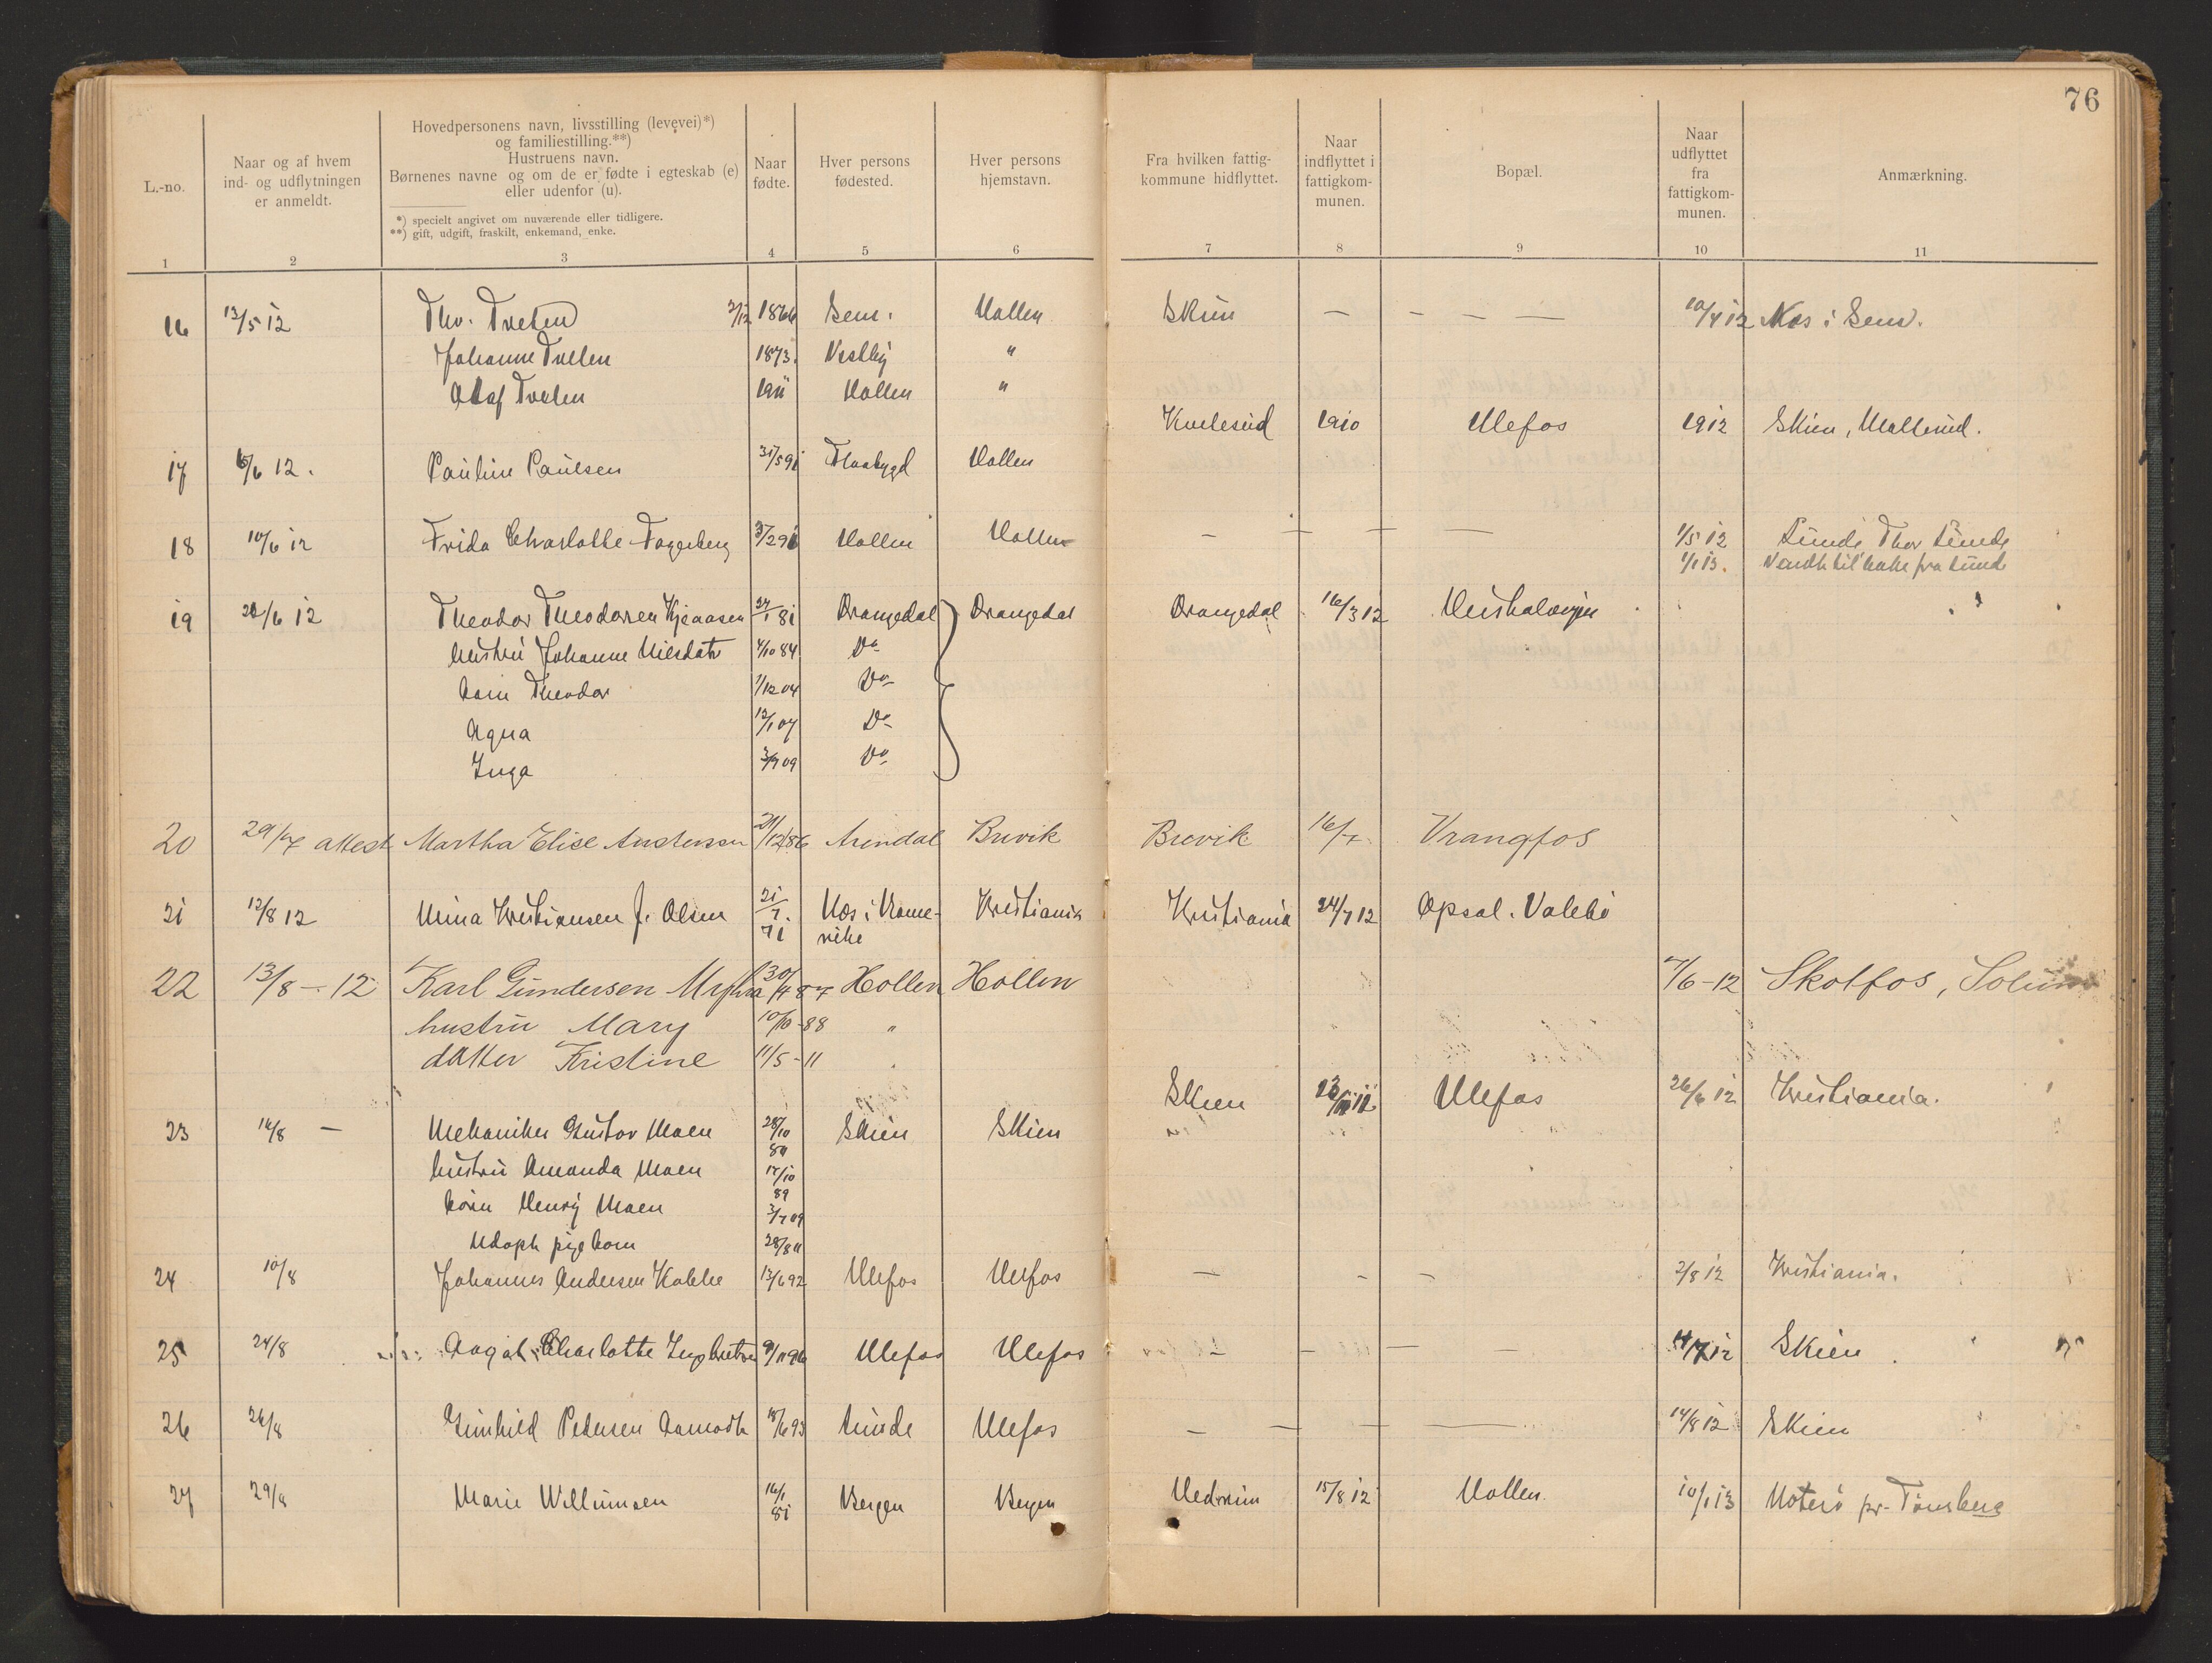 76
L.-no.
Naar og af hvem
ind- og udflytningen
er anmeldt.
Hovedpersonens navn, livsstilling (levevei)*)
og familiestilling.**)
Hustruens navn.
Børnenes navne og om de er fødte i egteskab (e)
eller udenfor (u).
*) specielt angivet om nuværende eller tidligere.
**) gift, udgift, fraskilt, enkemand, enke.
Naar
fødte.
Hver persons
fødested.
Hver persons
hjemstavn.
Fra hvilken fattig-
kommune hidflyttet.
Naar
indflyttet i
fattigkom-
munen.
Bopæl.
Naar
udflyttet
fra
fattigkom-
munen.
Anmærkning.
1 2 3 4 5 6 7 8 9 10 11
16 13/5 12 Thv. Tveten 2/12 1866 Hollen Skien — — — — 10/4 12 Næs i
Johanne Tveten 1873. Vestby "
Olaf Tveten 1911 Hollen "
Kviteseid 1910 Ulefos 1912 Skien,
17 6/6 12. Pauline Paulsen 31/5 91 Flaabygd Hollen
18 10/6 12 Frida Charlotte Fagerberg Hollen Hollen — — — — 1/5 12 Lunde Thor Lunde
1/1 13. Vendt tilbake fra Lunde
19 22/6 12 Theodor Theodorsen Kjeaasen 27/1 81 Drangedal Drangedal Drangedal 16/3 12
hustru Johanne Nilsdatr 4/10 84 Do
barn Theodor 1/12 04 Do
Agna 12/1 07 Do
Inga 3/9 09 Do
20 29/7 attest Martha Elise Austensen 21/12 86 Arendal Brevik Brevik 16/7 Vrangfos
21 12/8 12 Mina Kristiansen f. Olsen 21/7. 71 Næs i Kristiania Kristiania 24/7 12 Opsal. Valebø
22 13/8 - 12 Karl Gundersen Myhra 30/4 87 Hollen Hollen 7/6-12 Skotfos, Solum
hustru Mary 10/10-88 "
datter Kristine 11/5-11
Skien Ulefos 26/6 12 Kristiania.
23 14/8 — Mekaniker Gustav Moen 28/10 80 Skien Skien
hustru Amanda Moen 17/10 89
barn Henry Moen 3/7 09
Udøpt pigebarn 28/8 11
24 10/8 Johannes Andersen Kabbe 13/6 92 Ulefos Ulefos — — — 2/8 12 Kristiania.
25 24/8 Aagot Charlotte Ingbretsen 9/11 96 Ulefos Ulefos — — — — Skien
26 26/8 Gunhild Pedersen Aamodt 18/6 93 Lunde Ulefos — — — — 14/8 12 Skien
27 29/8 Marie Willumsen 16/1 81 Bergen Bergen Hedrum 15/8 12 Hollen 10/1 13 Nøterø pr. Tønsberg